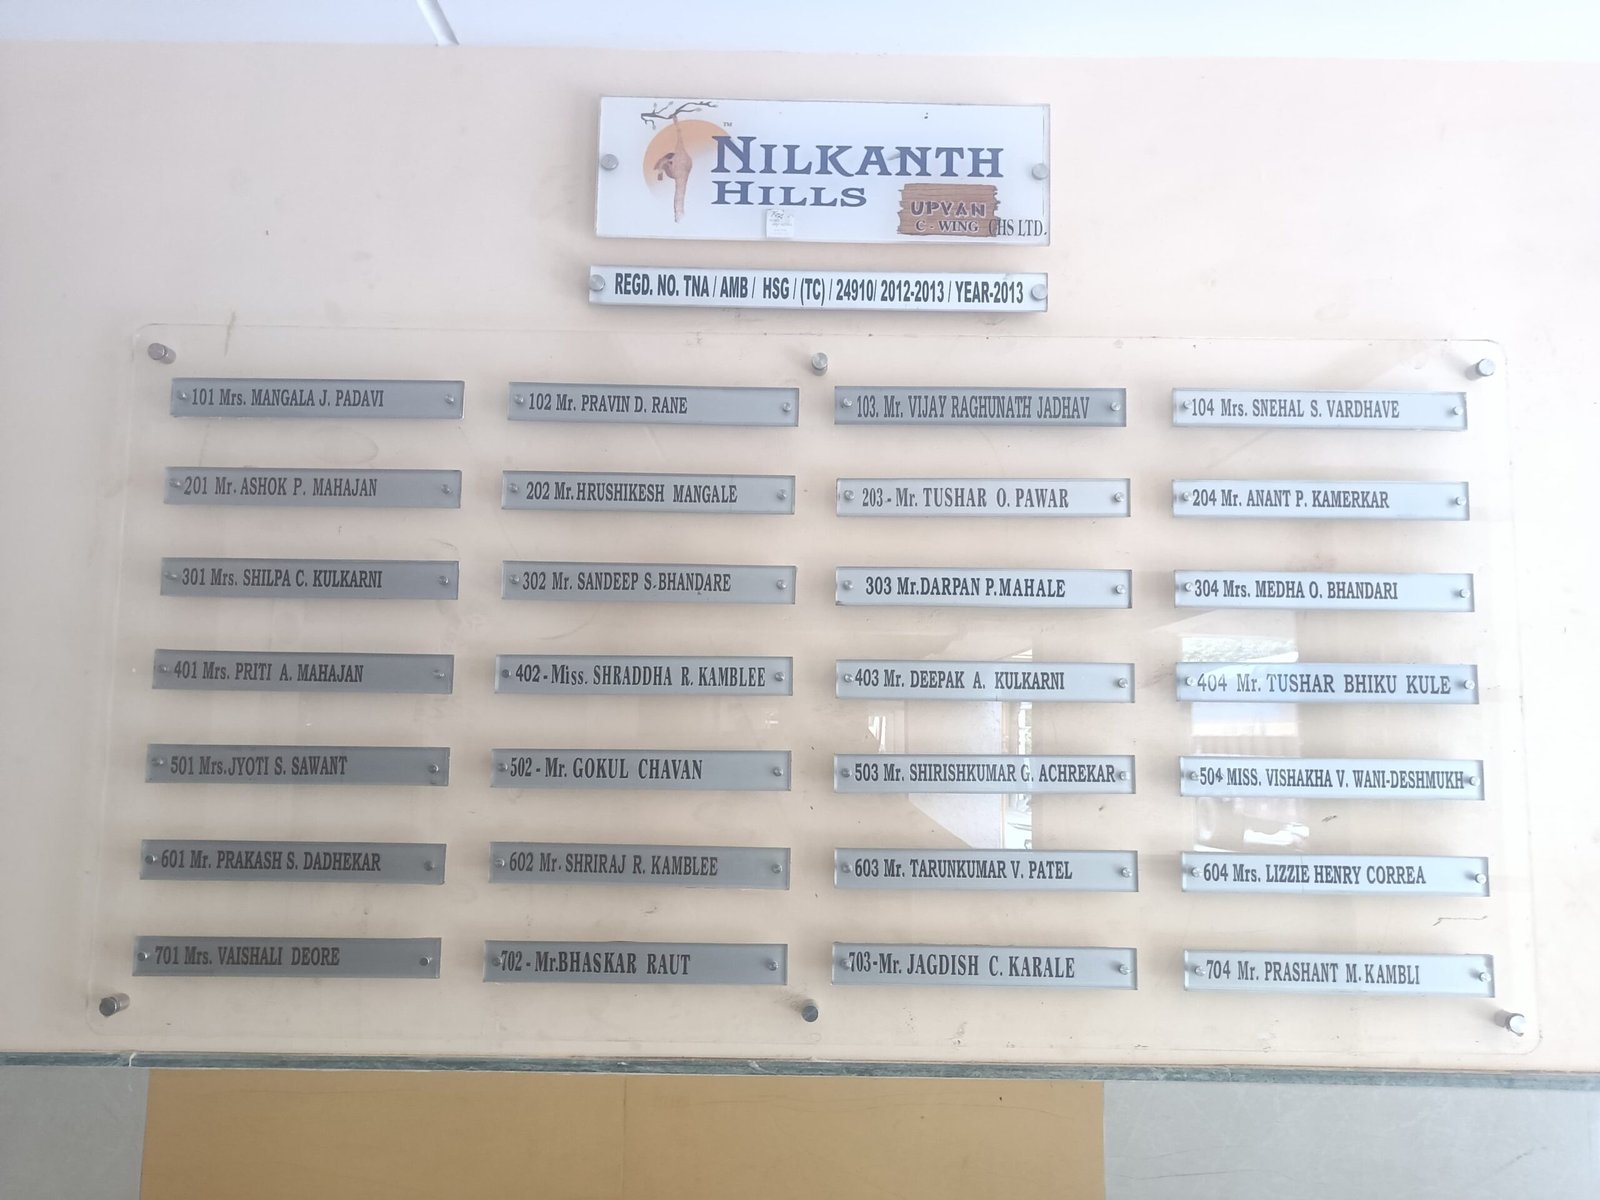 NILKANTH
HILLS
UPVAN
C - WING CHS LTD.
REGD. NO. TNA / AMB / HSG / (TC) / 24910/ 2012-2013 / YEAR-2013
101 Mrs. MANGALA J. PADAVI
102 Mr. PRAVIN D. RANE
103. Mr. VIJAY RAGHUNATH JADHAV
104 Mrs. SNEHAL S. VARDHAVE
201 Mr. ASHOK P. MAHAJAN
202 Mr.HRUSHIKESH MANGALE
203- Mr. TUSHAR O. PAWAR
204 Mr. ANANT P. KAMERKAR
301 Mrs. SHILPA C. KULKARNI
302 Mr. SANDEEP S.BHANDARE
303 Mr.DARPAN P.MAHALE
304 Mrs. MEDHA O. BHANDARI
401 Mrs. PRITI A. MAHAJAN
402-Miss. SHRADDHA R. KAMBLEE
403 Mr. DEEPAK A. KULKARNI
404 Mr. TUSHAR BHIKU KULE
501 Mrs.JYOTI S. SAWANT
502 - Mr. GOKUL CHAVAN
503 Mr. SHIRISHKUMAR G. ACHREKAR
504 MISS. VISHAKHA V. WANI-DESHMUKH
601 Mr. PRAKASH S. DADHEKAR
602 Mr. SHRIRAJ R. KAMBLEE
603 Mr. TARUNKUMAR V. PATEL
604 Mrs. LIZZIE HENRY CORREA
701 Mrs. VAISHALI DEORE
702 - Mr.BHASKAR RAUT
703-Mr. JAGDISH C. KARALE
704 Mr. PRASHANT M. KAMBLI